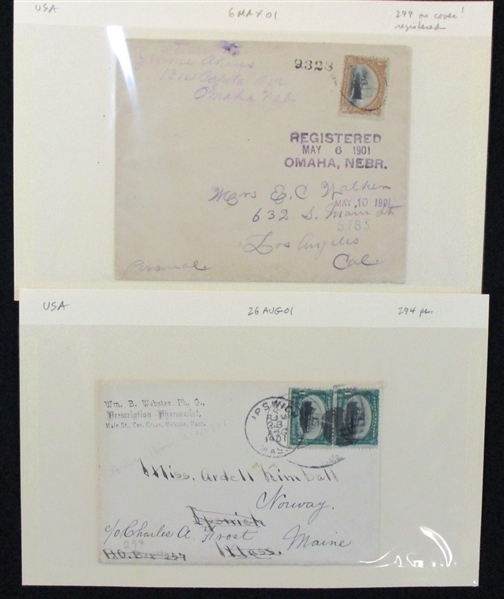 USA 6 MAY 01 299 on cover!
registered
9328
Omaha Neb
REGISTERED
MAY 6 1901
OMAHA, NEBR.
Mrs E. C. Walker
MAY 10 1901
632 S. Main St
5783
Los Angeles
Personal Cal
USA 26 AUG 01 294 pr
Wm. B. Webster Ph. G.,
Prescription Pharmacist,
Main St., Cor.
IPSWICH
AUG
1901
MASS.
Miss. Ardell Kimball
Norway,
Ipswich
c/o Charles A. Frost Maine
294
P.O. Box 237 Mass.